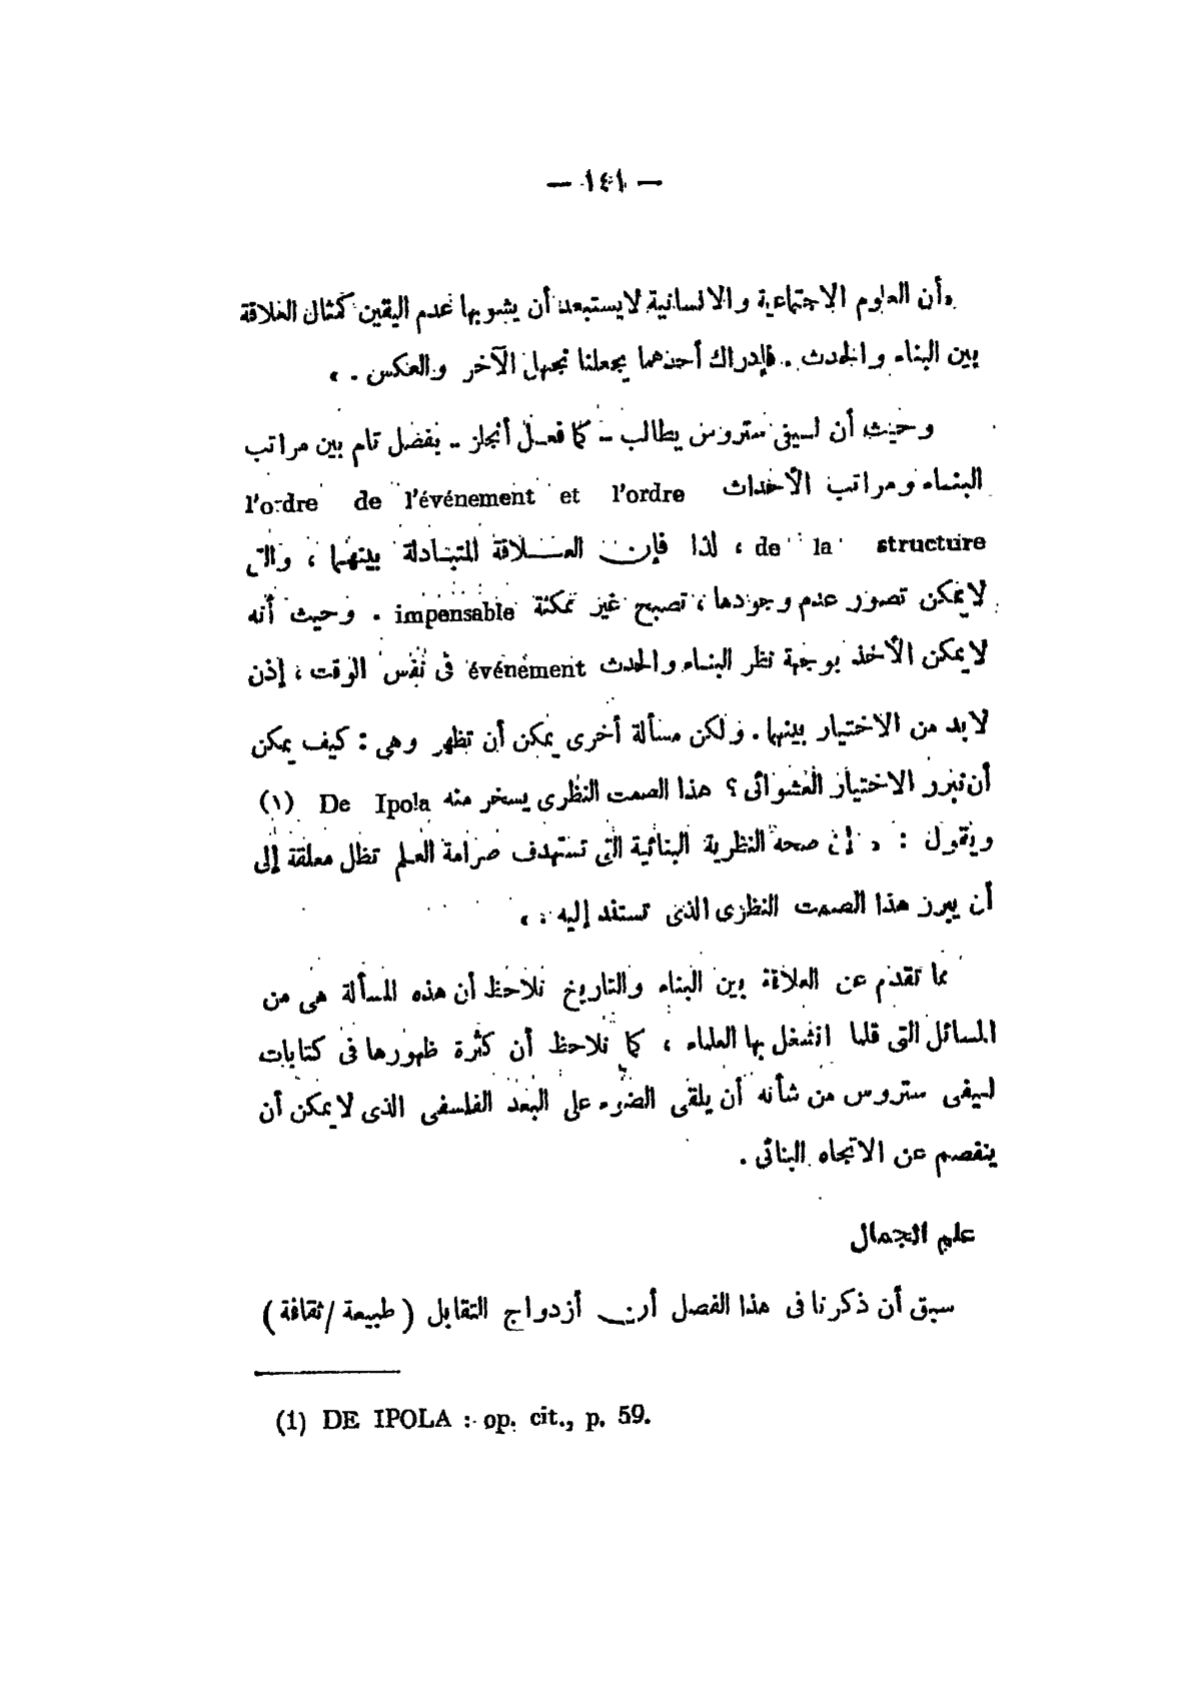 — ١٤١ —
«أن العلوم الاجتماعية والانسانية لايستبعد أن يشوبها عدم اليقين كمثال العلاقة
بين البناء والحدث . فإدراك أحدهما يجعلنا نجهل الآخر والعكس . »
وحيث أن ليفى ستروس يطالب – كما فعل أنجلز – بفصل تام بين مراتب
البناء ومراتب الأحداث l'ordre de l'événement et l'ordre
de la structure ، لذا فإن العلاقة المتبادلة بينهما ، والتى
لايمكن تصور عدم وجودها ، تصبح غير ممكنة impensable . وحيث أنه
لايمكن الأخذ بوجهة نظر البناء والحدث événement فى نفس الوقت ، إذن
لابد من الاختيار بينهما . ولكن مسألة أخرى يمكن أن تظهر وهى : كيف يمكن
أن نبرر الاختيار العشوائى ؟ هذا الصمت النظرى يسخر منه De Ipola (١)
ويقول : « إن صحة النظرية البنائية التى تستهدف صرامة العلم تظل معلقة إلى
أن يبرز هذا الصمت النظرى الذى تستند إليه . »
مما تقدم عن العلاقة بين البناء والتاريخ نلاحظ أن هذه المسألة هى من
المسائل التى قلما انشغل بها العلماء ، كما نلاحظ أن كثرة ظهورها فى كتابات
ليفى ستروس من شأنه أن يلقى الضوء على البعد الفلسفى الذى لايمكن أن
ينفصم عن الاتجاه البنائى .
علم الجمال
سبق أن ذكرنا فى هذا الفصل أن أزدواج التقابل ( طبيعة / ثقافة )
(1) DE IPOLA : op. cit., p. 59.